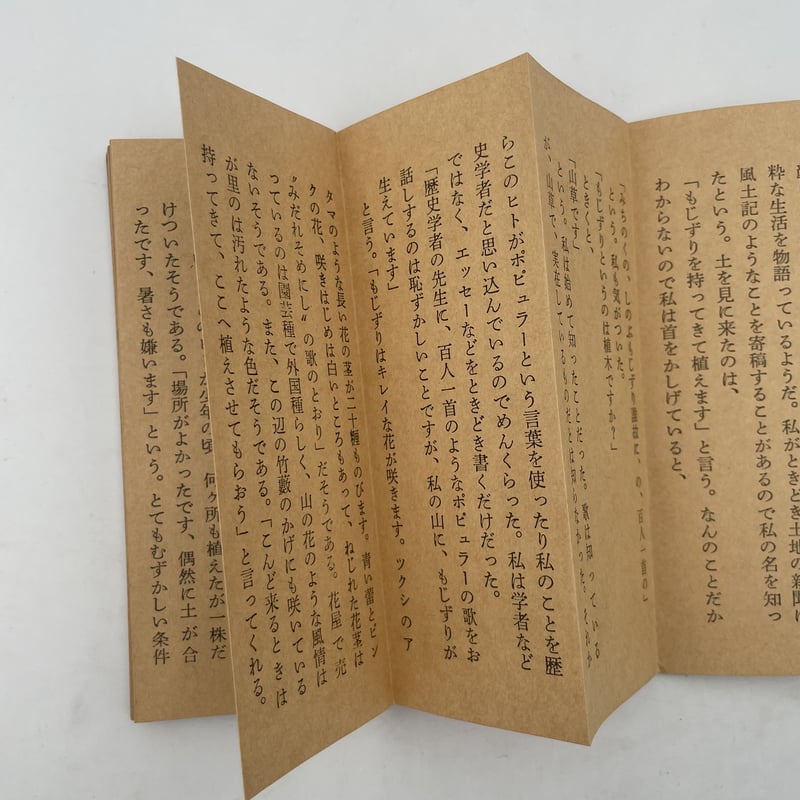 粋な生活を物語っているようだ。私がときどき土地の新聞に
風土記のようなことを寄稿することがあるので私の名を知っ
たという。土を見に来たのは、
「もじずりを持ってきて植えます」と言う。なんのことだか
わからないので私は首をかしげていると、
「みちのくの、しのぶもじずり誰故に、の、百人一首のし
という。私も気がついた。
「もじずりというのは植木ですか？」
ときくと、
「山草です」
という。私は始めて知ったことだった。歌は知っている
が、山草で、実在しているものだとは知らなかった。それか
らこのヒトがポピュラーという言葉を使ったり私のことを歴
史学者だと思い込んでいるのでめんくらった。私は学者など
ではなく、エッセーなどをときどき書くだけだった。
「歴史学者の先生に、百人一首のようなポピュラーの歌をお
話しするのは恥ずかしいことですが、私の山に、もじずりが
生えています」
と言う。「もじずりはキレイな花が咲きます。ツクシのア
タマのような長い花の茎が二十糎ものびます。青い蕾とピン
クの花、咲きはじめは白いところもあって、ねじれた花茎は
〝みだれそめにし〟の歌のとおり」だそうである。花屋で売
っているのは園芸種で外国種らしく、山の花のような風情は
ないそうである。また、この辺の竹藪のかげにも咲いている
が里のは汚れたような色だそうである。「こんど来るときは
持ってきて、ここへ植えさせてもらおう」と言ってくれる。
何ヶ所も植えたが一株だ
けついたそうである。「場所がよかったです、偶然に土が合
ったです、暑さも嫌います」という。とてもむずかしい条件